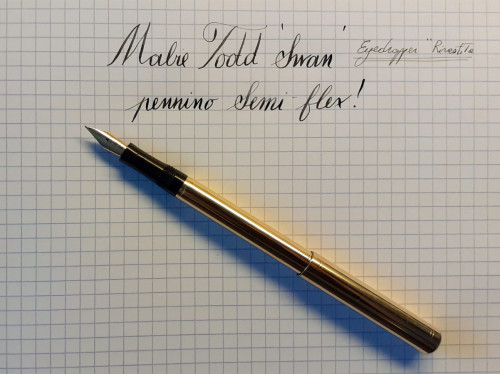 Mabie Todd 'Swan'
Eyedropper
pennino semi-flex!